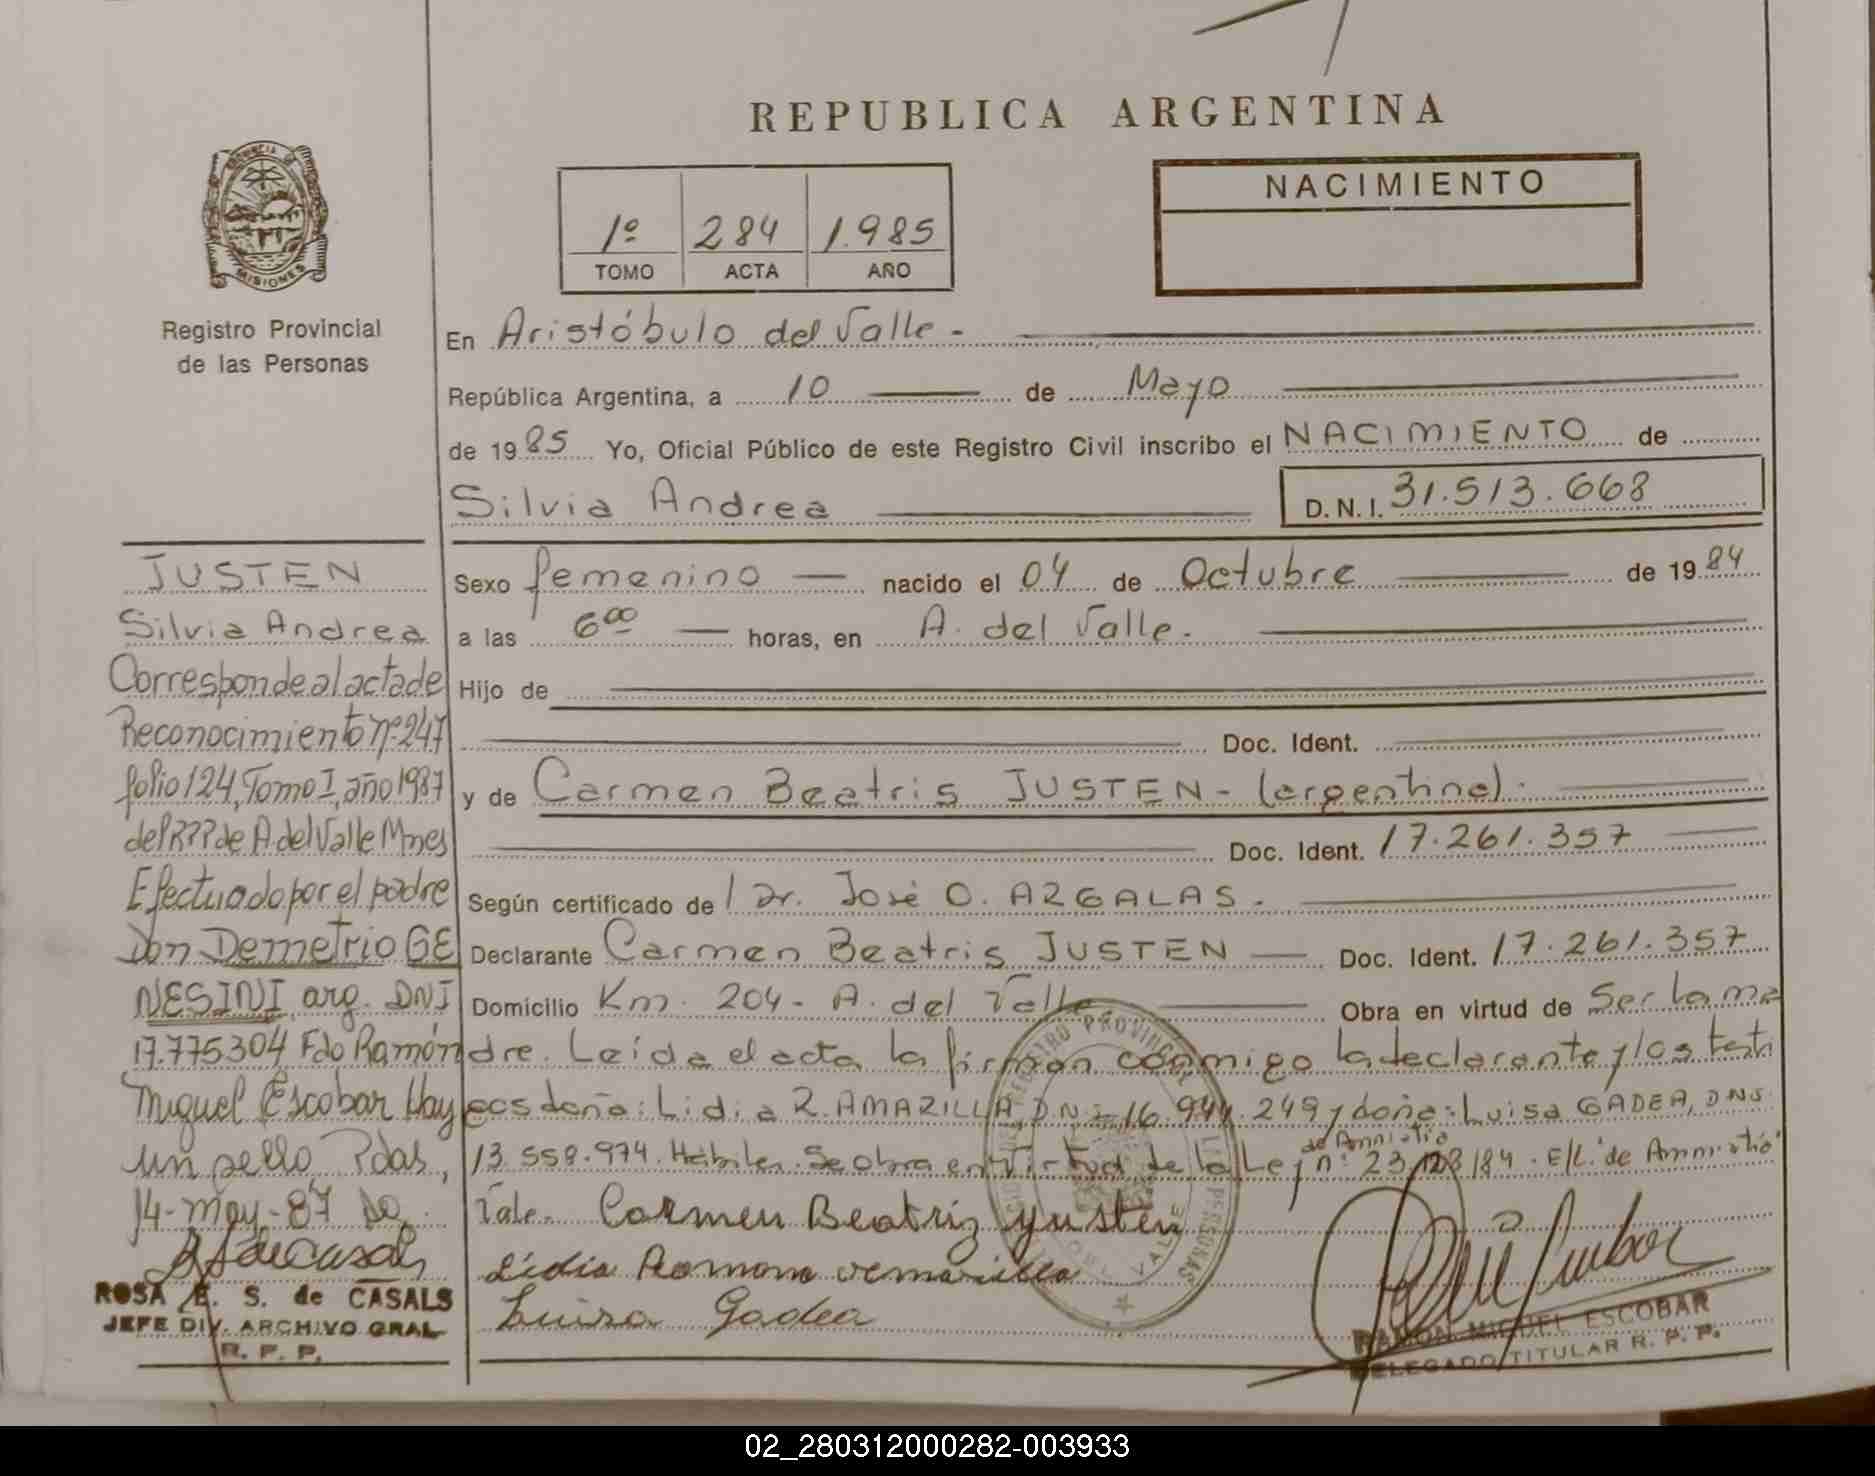 REPUBLICA ARGENTINA
PROVINCIA DE
MISIONES
Registro Provincial
de las Personas
1º 284 1.985
TOMO ACTA AÑO
NACIMIENTO
En Aristóbulo del Valle -
República Argentina, a 10 de Mayo
de 1985 Yo, Oficial Público de este Registro Civil inscribo el NACIMIENTO de
Silvia Andrea D.N.I. 31.513.668
Sexo femenino nacido el 04 de Octubre de 1984
a las 6 00 horas, en A. del Valle.
Hijo de
Doc. Ident.
y de Carmen Beatris JUSTEN - (argentina).
Doc. Ident. 17.261.357
Según certificado de Dr. José O. ARGALAS.
Declarante Carmen Beatris JUSTEN Doc. Ident. 17.261.357
Domicilio Km. 204 - A. del Valle Obra en virtud de Ser la ma
dre. Leída el acta la firman conmigo la declarante y los testi
gos doña: Lidia R. AMARILLA, DNI 16.944.249 y doña: Luisa GADEA, DNI
de Amnistia
13.558.974. Hábiles. Se obra en virtud de la Ley nº 23.128/84. E/L: "de Amnistia"
Vale. Carmen Beatriz Yusten
Lidia Ramona Amarilla
Luisa Gadea
RAMON MIGUEL ESCOBAR
DELEGADO TITULAR R. P. P.
JUSTEN
Silvia Andrea
Corresponde al acta de
Reconocimiento nº 247
folio 124, Tomo I, año 1987
del R.P.P de A del Valle Mnes
Efectuado por el padre
Don Demetrio GE
NESINI arg. DNI
17.775304 Fdo Ramón
Miguel Escobar Hay
un sello Pdas,
14-May-87
ROSA E. S. de CASALS
JEFE DIV. ARCHIVO GRAL
R. P. P.
02_280312000282-003933